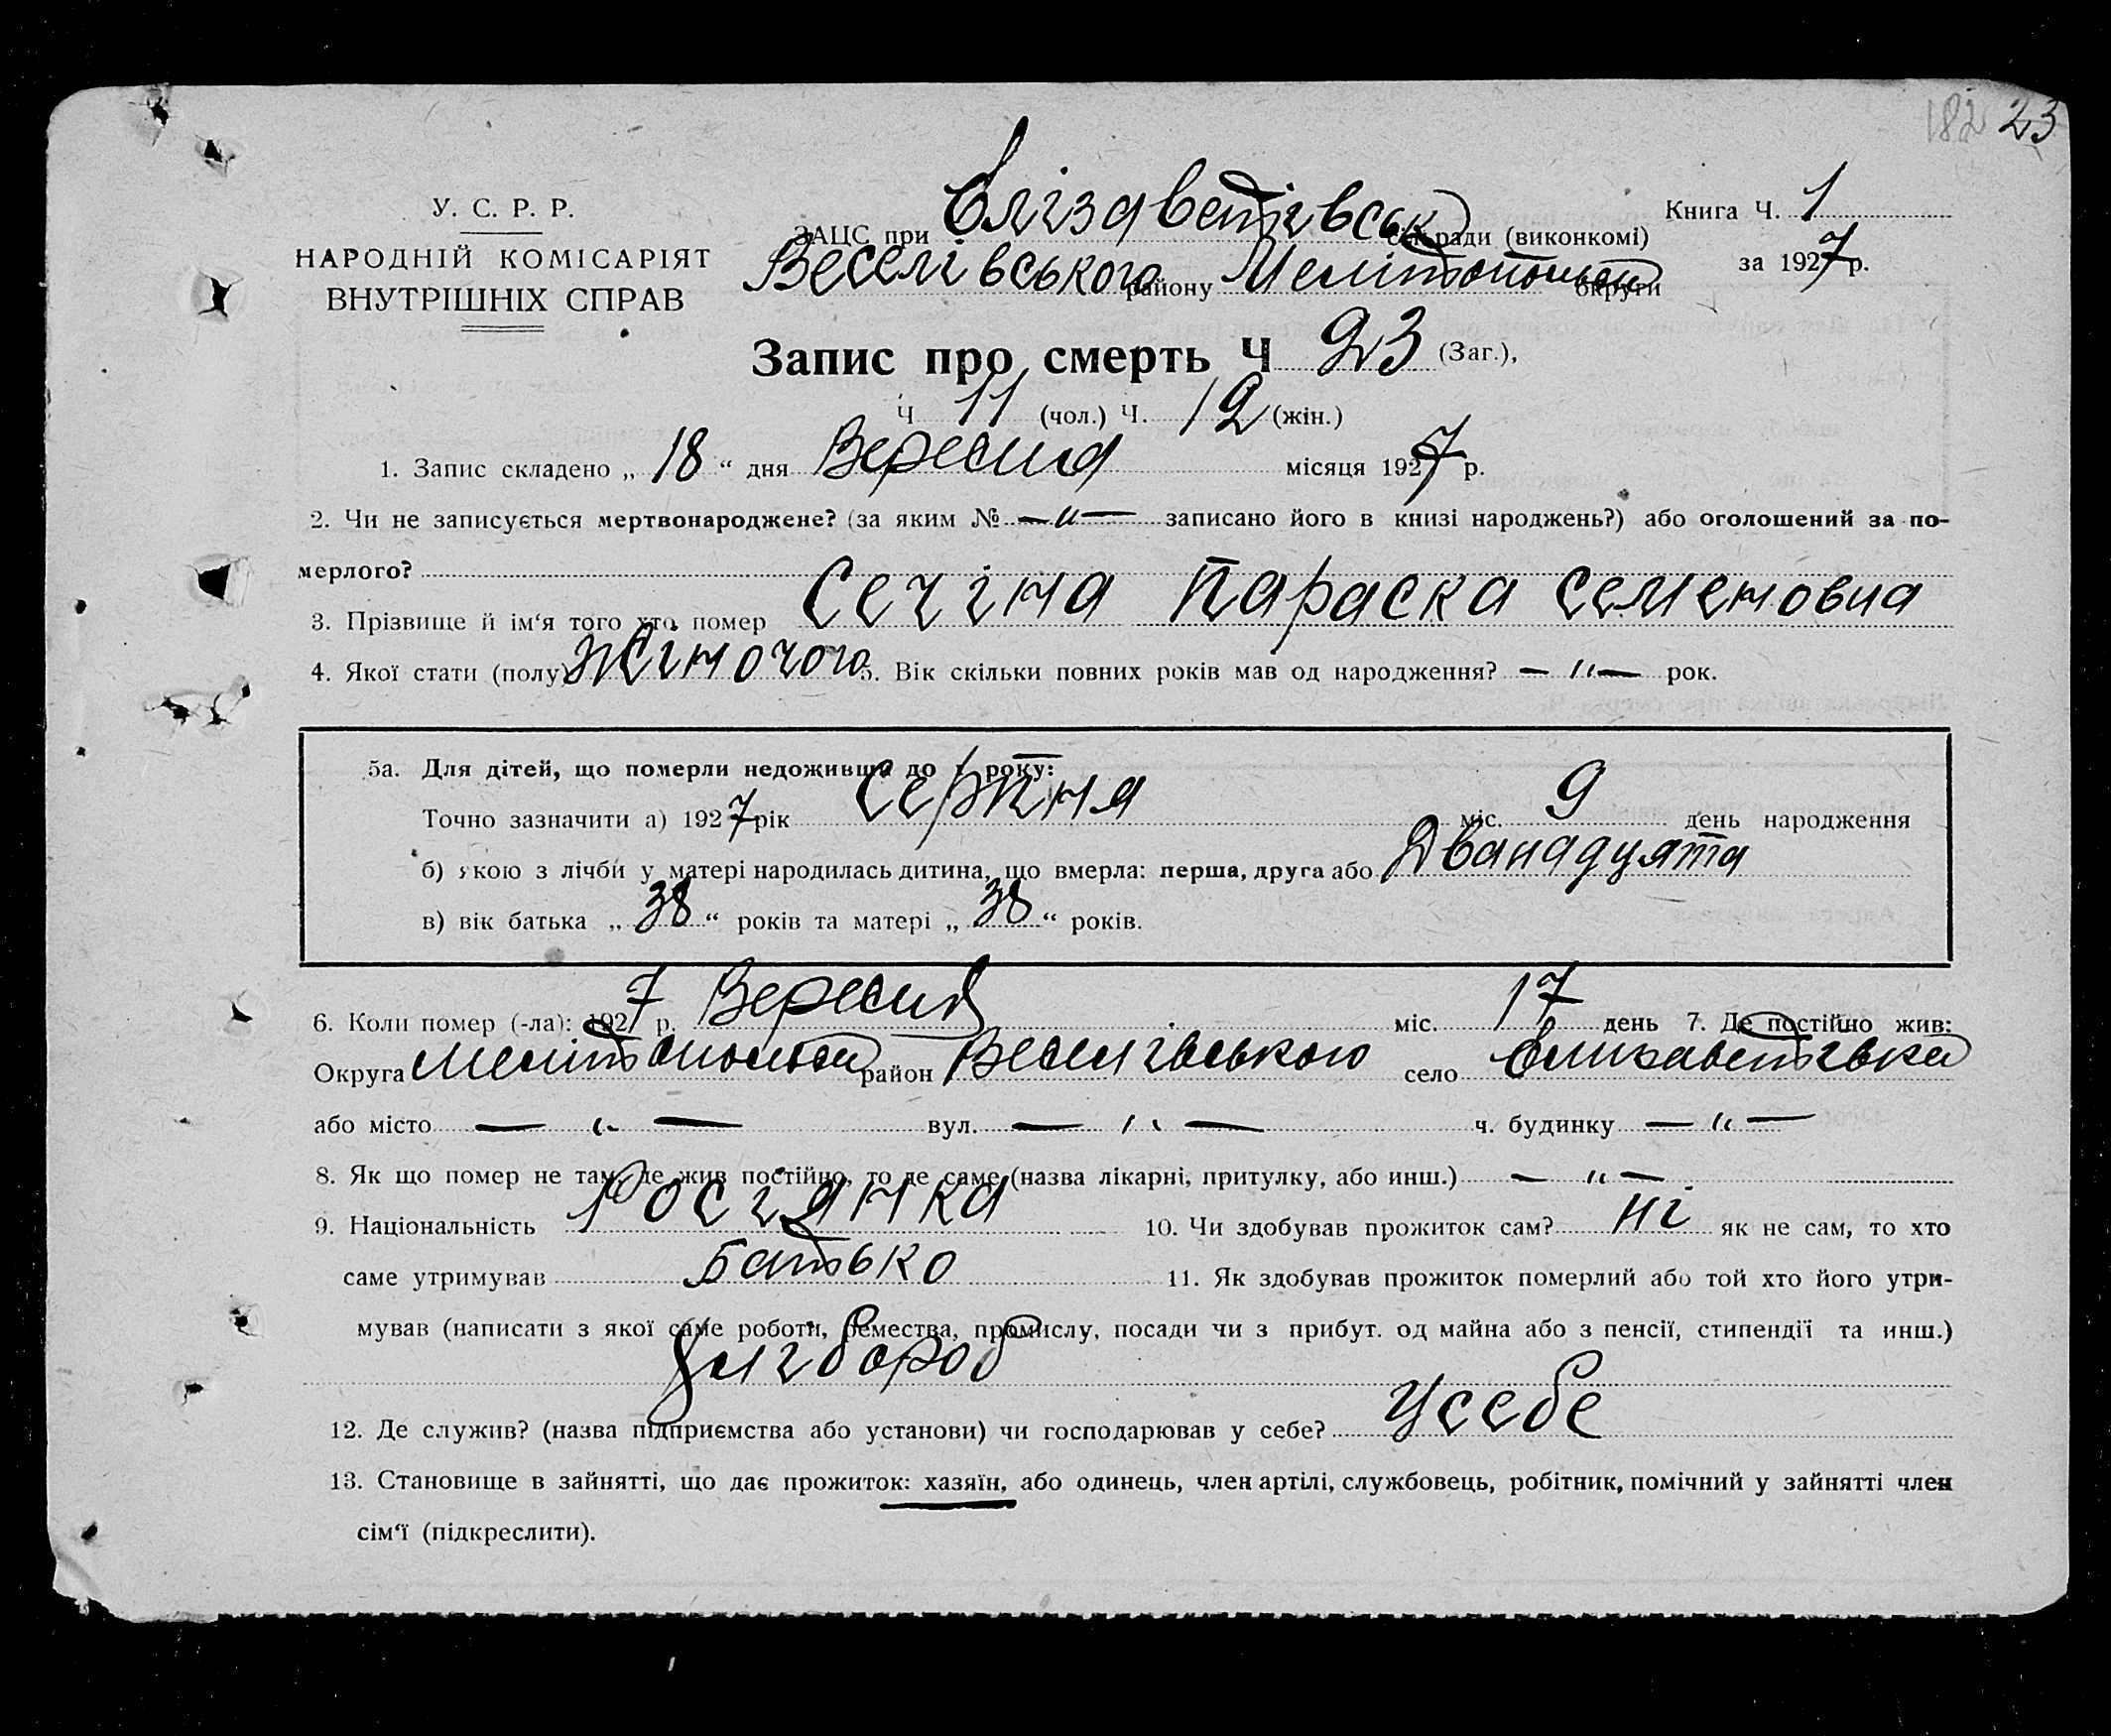 182 23
У. С. Р. Р.
НАРОДНІЙ КОМІСАРІЯТ
ВНУТРІШНІХ СПРАВ
Книга Ч. 1
за 1927 р.
ЗАЦС при Єлізаветівськ ради (виконкомі)
Веселівського району Мелітопольськ округи
Запис про смерть Ч 23 (Заг.),
Ч 11 (чол.) Ч. 12 (жін.)
1. Запис складено „ 18 “ дня Вересня місяця 1927 р.
2. Чи не записується мертвонароджене? (за яким № — " — записано його в книзі народжень?) або оголошений за по-
мерлого?
3. Прізвище й ім‘я того хто помер Сечіна Параска Семеновна
4. Якої стати (полу) жіночого 5. Вік скільки повних років мав од народження? — " — рок.
5а. Для дітей, що померли недоживши до 1 року:
Точно зазначити а) 1927 рік Серпня міс. 9 день народження
б) якою з лічби у матері народилась дитина, що вмерла: перша, друга або Дванадцята
в) вік батька „ 38 “ років та матері „ 38 “ років.
6. Коли помер (-ла): 1927 р. Вересня міс. 17 день 7. Де постійно жив:
Округа Мелітопольськ район Веселівського село Єлизаветівка
або місто — " — вул. — " — ч. будинку — " —
8. Як що помер не там, де жив постійно, то де саме (назва лікарні, притулку, або инш.) — " —
9. Національність Росіянка 10. Чи здобував прожиток сам? ні як не сам, то хто
саме утримував батько 11. Як здобував прожиток померлий або той хто його утри-
мував (написати з якої саме роботи, ремества, промислу, посади чи з прибут. од майна або з пенсії, стипендії та инш.)
Хлібороб
12. Де служив? (назва підприємства або установи) чи господарював у себе? У себе
13. Становище в зайнятті, що дає прожиток: хазяїн, або одинець, член артілі, службовець, робітник, помічний у зайнятті член
сім‘ї (підкреслити).